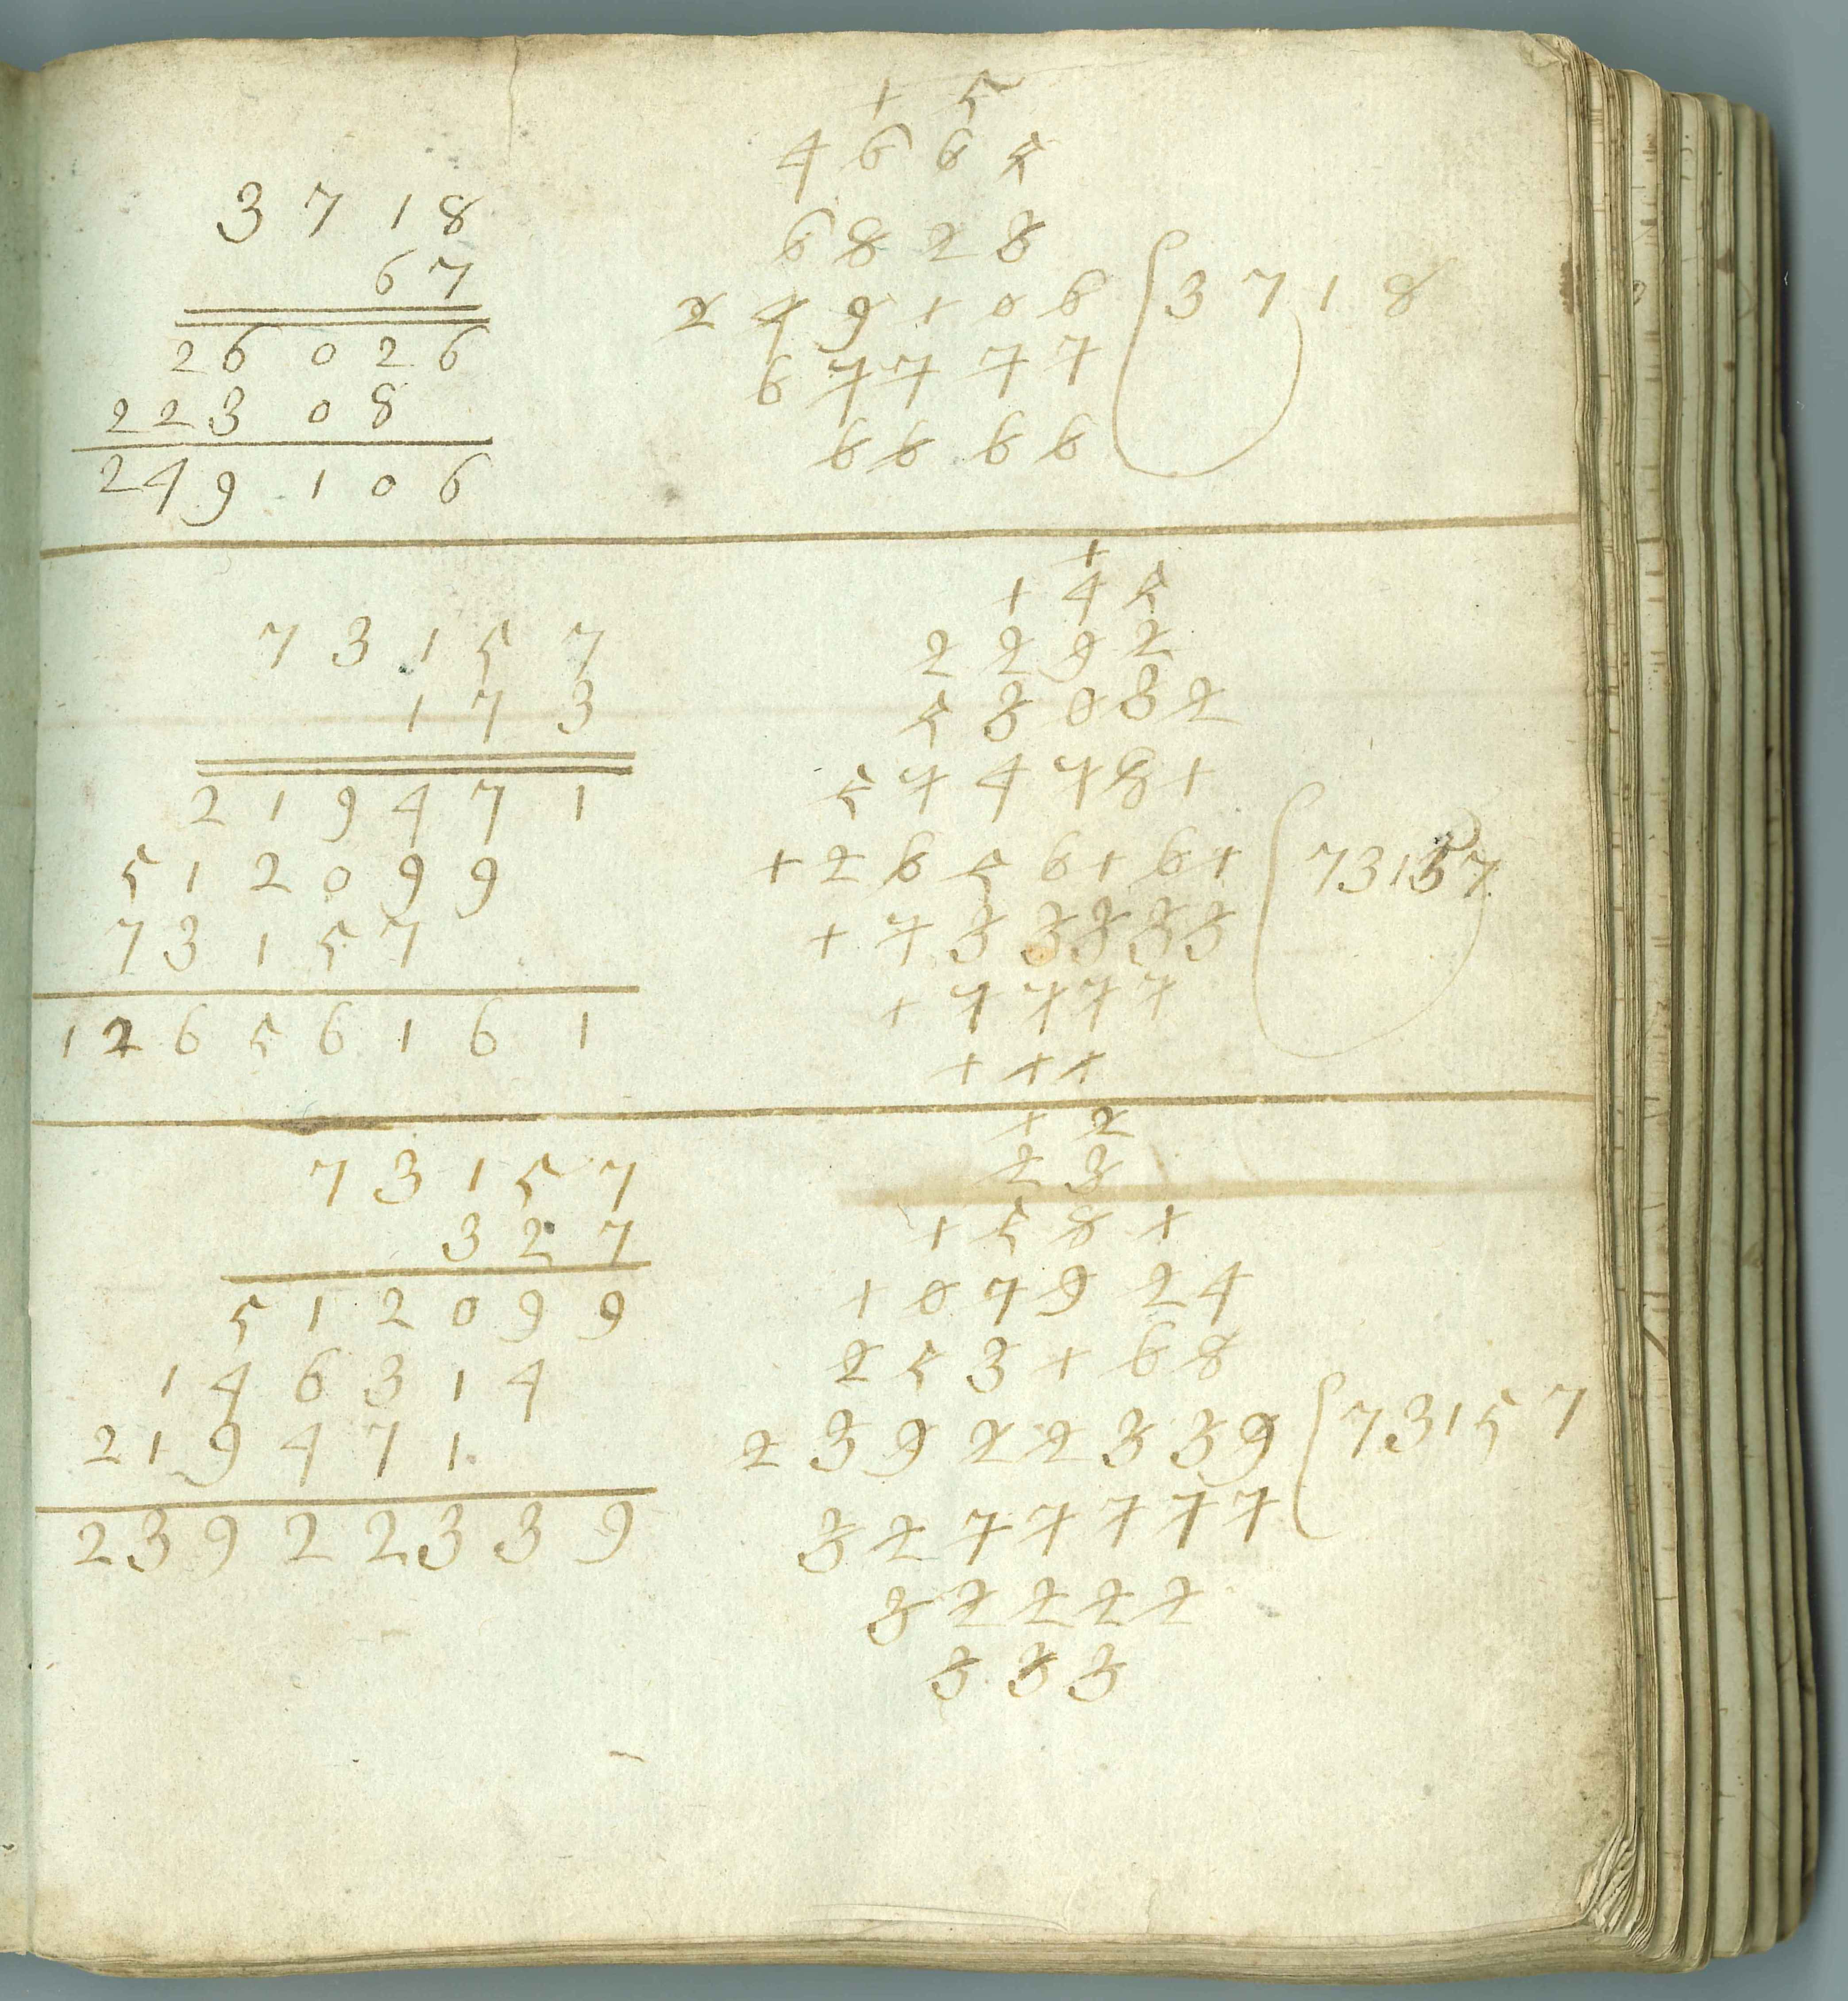 3 7 1 8
6 7
2 6 0 2 6
2 2 3 0 8
2 4 9 1 0 6
1 5
4 6 6 5
6 8 2 8
2 4 9 1 0 6 ( 3 7 1 8
6 7 7 7 7
6 6 6 6
7 3 1 5 7
1 7 3
2 1 9 4 7 1
5 1 2 0 9 9
7 3 1 5 7
1 2 6 5 6 1 6 1
1
1 4 5
2 2 9 2
5 3 0 3 2
5 7 4 7 8 1
1 2 6 5 6 1 6 1 ( 7 3 1 5 7
1 7 3 3 3 3 3
1 7 7 7 7
1 1 1
7 3 1 5 7
3 2 7
5 1 2 0 9 9
1 4 6 3 1 4
2 1 9 4 7 1
2 3 9 2 2 3 3 9
1 2
2 3
1 5 8 1
1 0 7 9 2 4
2 5 3 1 6 8
2 3 9 2 2 3 3 9 ( 7 3 1 5 7
3 2 7 7 7 7 7
3 2 2 2 2
3 3 3